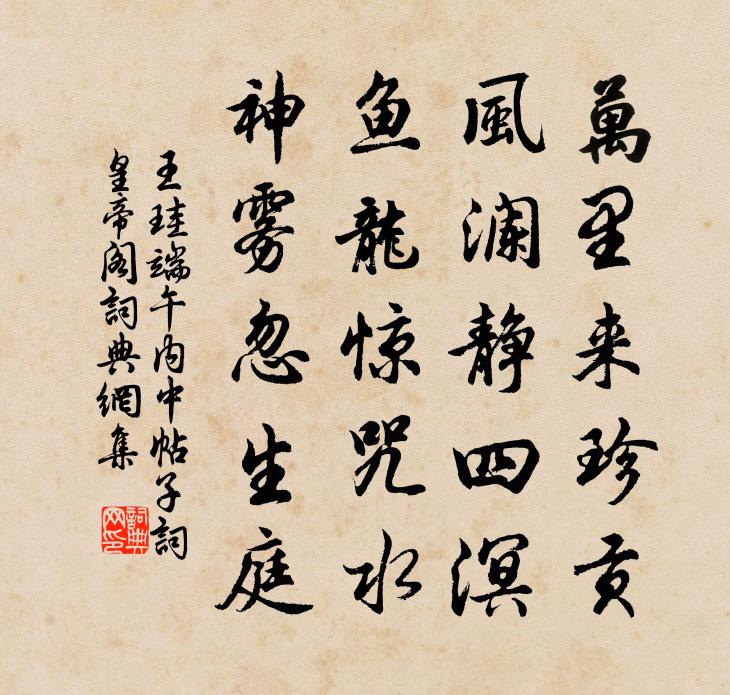 萬里来珍贡
風澜静四溟
鱼龍惊咒水
神雾忽生庭
王珪端午内中帖子詞
皇帝阁詞典網集
詞典网印